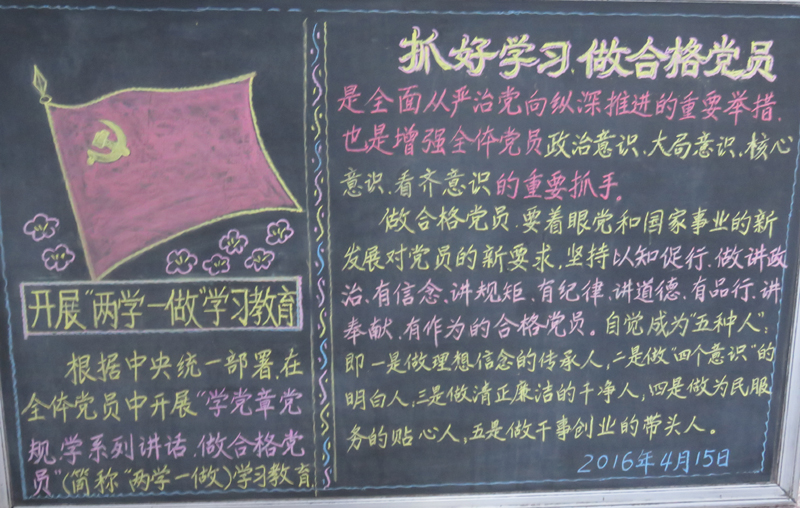 开展"两学一做"学习教育
根据中央统一部署,在
全体党员中开展"学党章党
规,学系列讲话,做合格党
员"(简称"两学一做)学习教育
抓好学习、做合格党员
是全面从严治党向纵深推进的重要举措,
也是增强全体党员政治意识、大局意识、核心
意识、看齐意识的重要抓手。
做合格党员,要着眼党和国家事业的新
发展对党员的新要求,坚持以知促行,做讲政
治、有信念、讲规矩、有纪律、讲道德、有品行、讲
奉献、有作为的合格党员。自觉成为"五种人":
即一是做理想信念的传承人,二是做"四个意识"的
明白人,三是做清正廉洁的干净人,四是做为民服
务的贴心人,五是做干事创业的带头人。
2016年4月15日